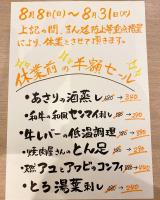 8月8日(日)〜8月31日(火)
上記の間、まん延防止等重点措置
により、休業とさせて頂きます。
休業前の半額セール
・あさりの酒蒸し
・和牛の和風センマイ刺し
・牛レバーの低温調理
・焼肉屋さんのとん足
・タコとアワビのコンフィ
・とろ湯葉刺し